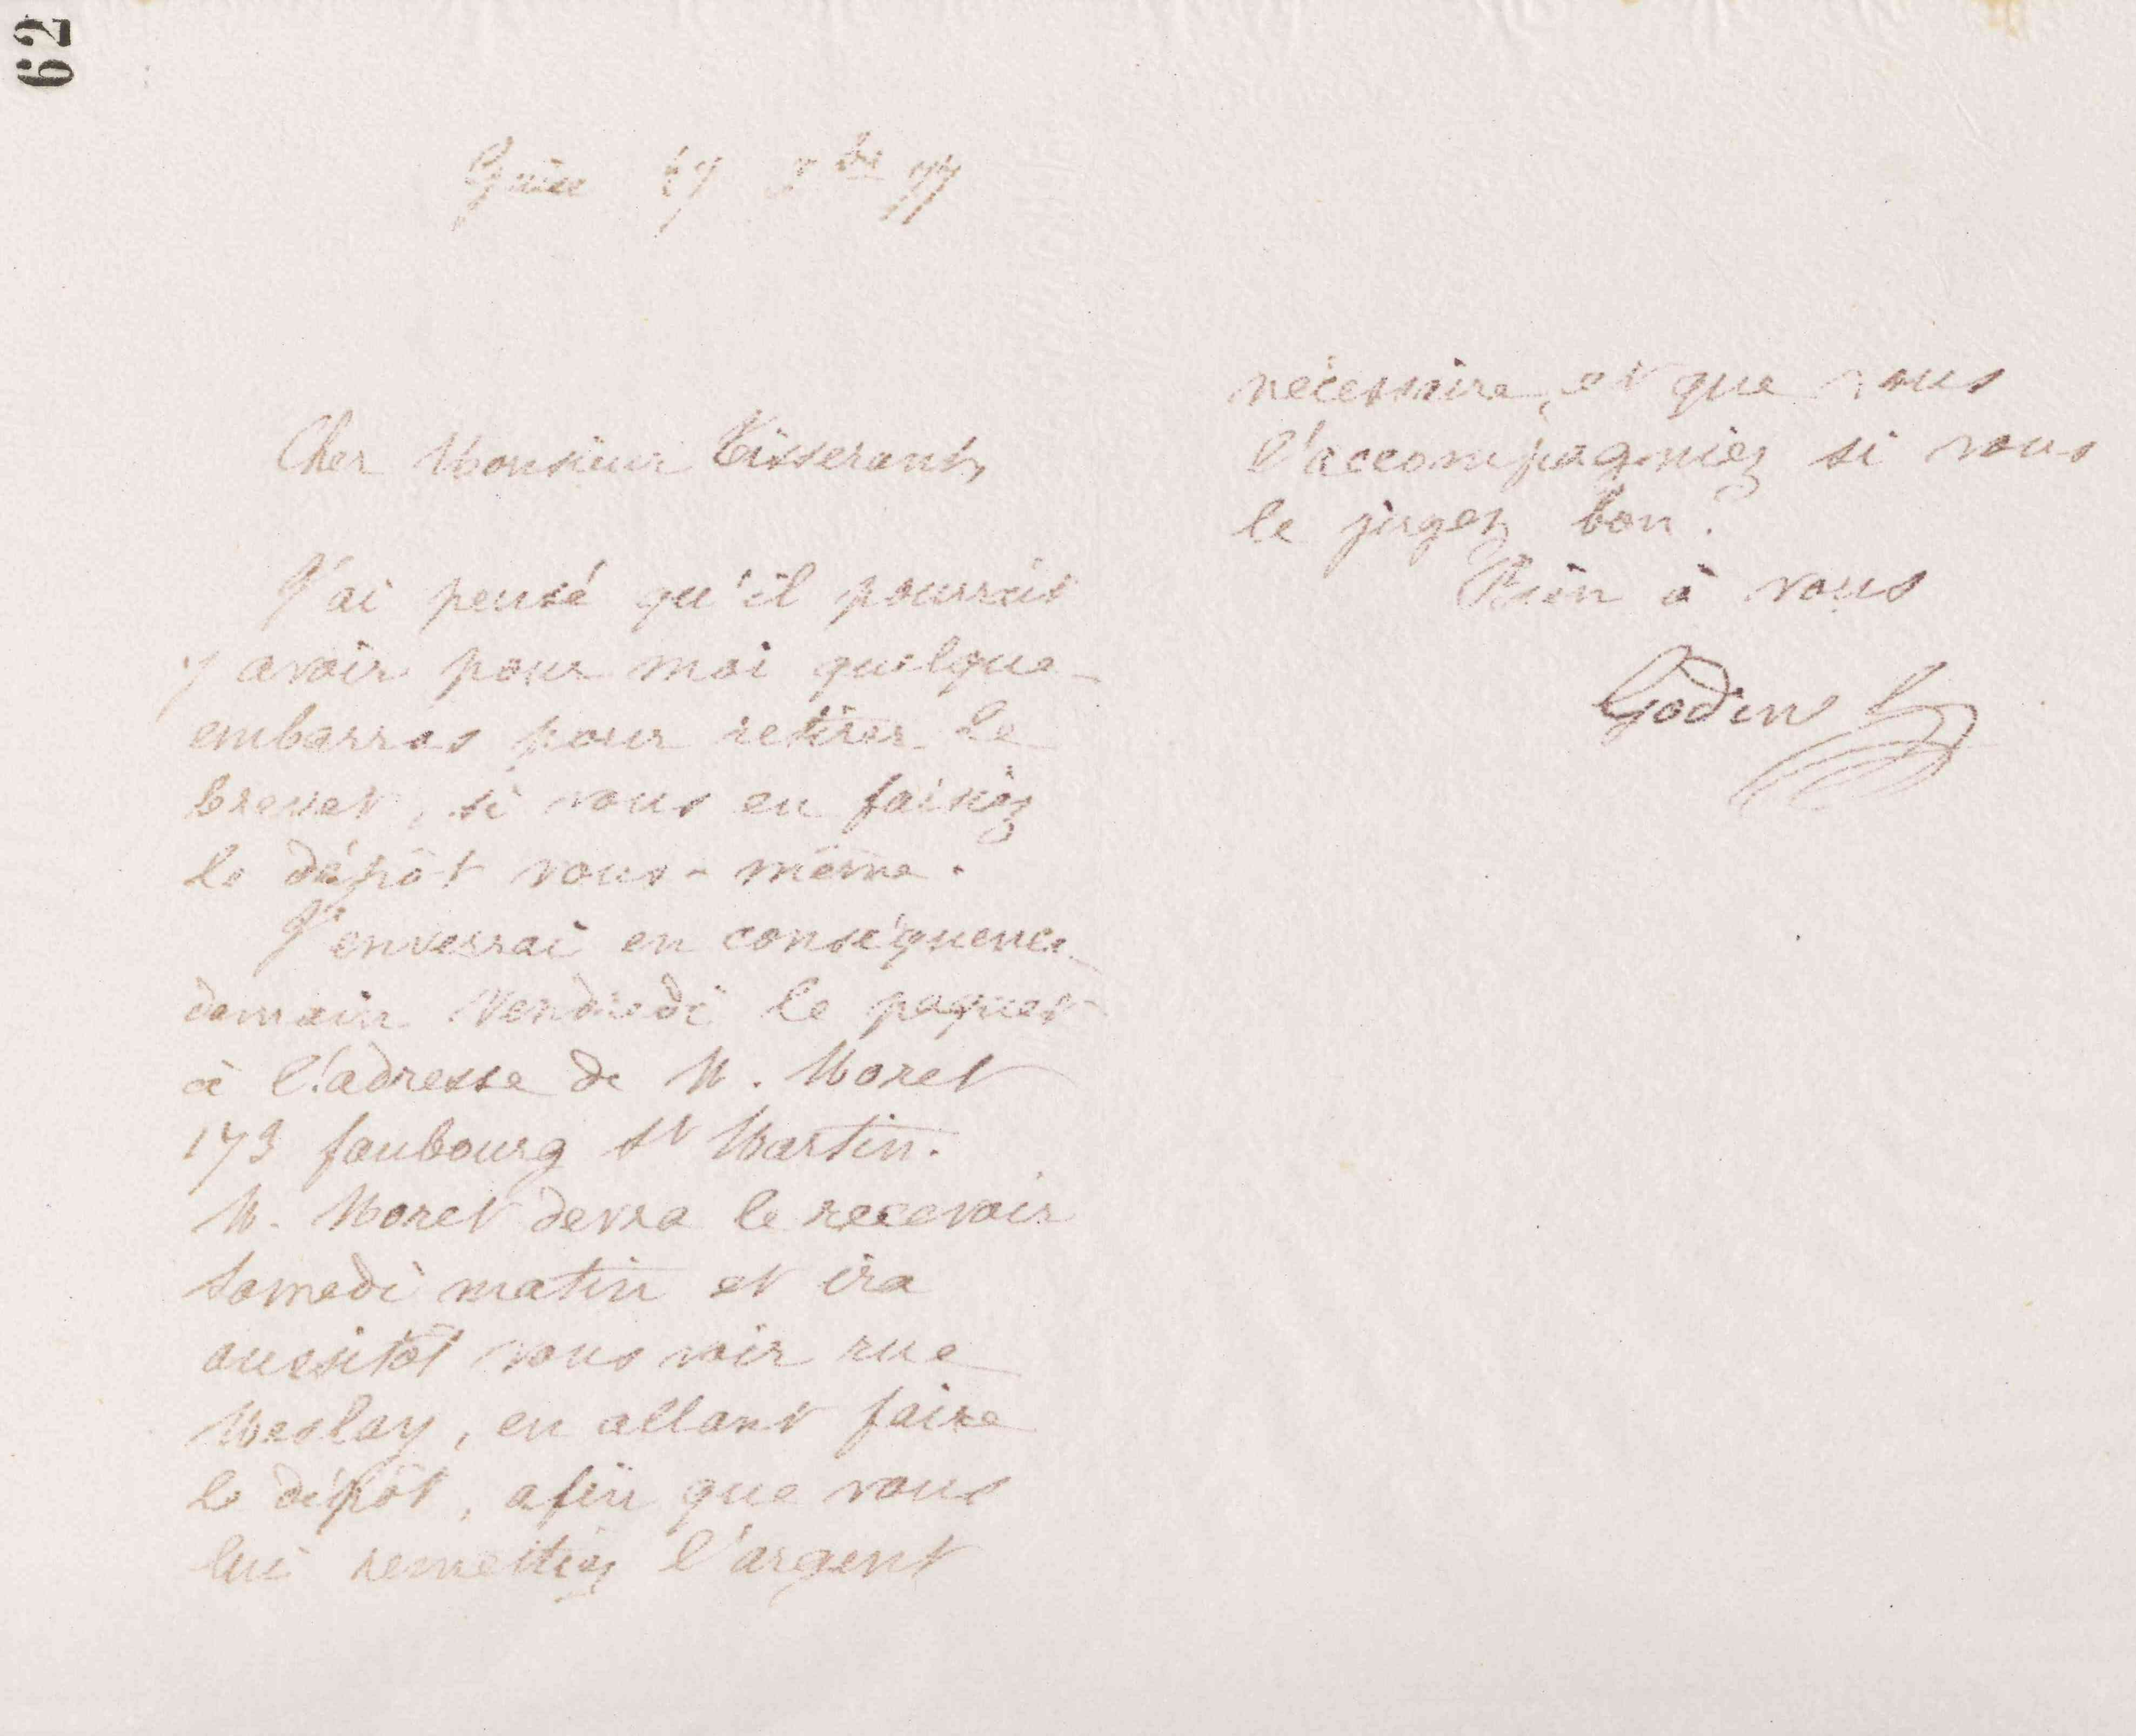 62
Guise 27 Xbre 77
Cher Monsieur Tisserant,
J'ai pensé qu'il pourrait
y avoir pour moi quelque
embarras pour retirer le
brevet, si vous en faisiez
le dépôt vous-même.
J'enverrai en conséquence
demain Vendredi le paquet
à l'adresse de M. Moret
173 faubourg St Martin.
M. Moret devra le recevoir
samedi matin et ira
aussitôt vous voir rue
Meslay, en allant faire
le dépôt, afin que vous
lui remettiez l'argent
nécessaire, et que vous
l'accompagniez si vous
le jugez bon.
Bien à vous
Godin